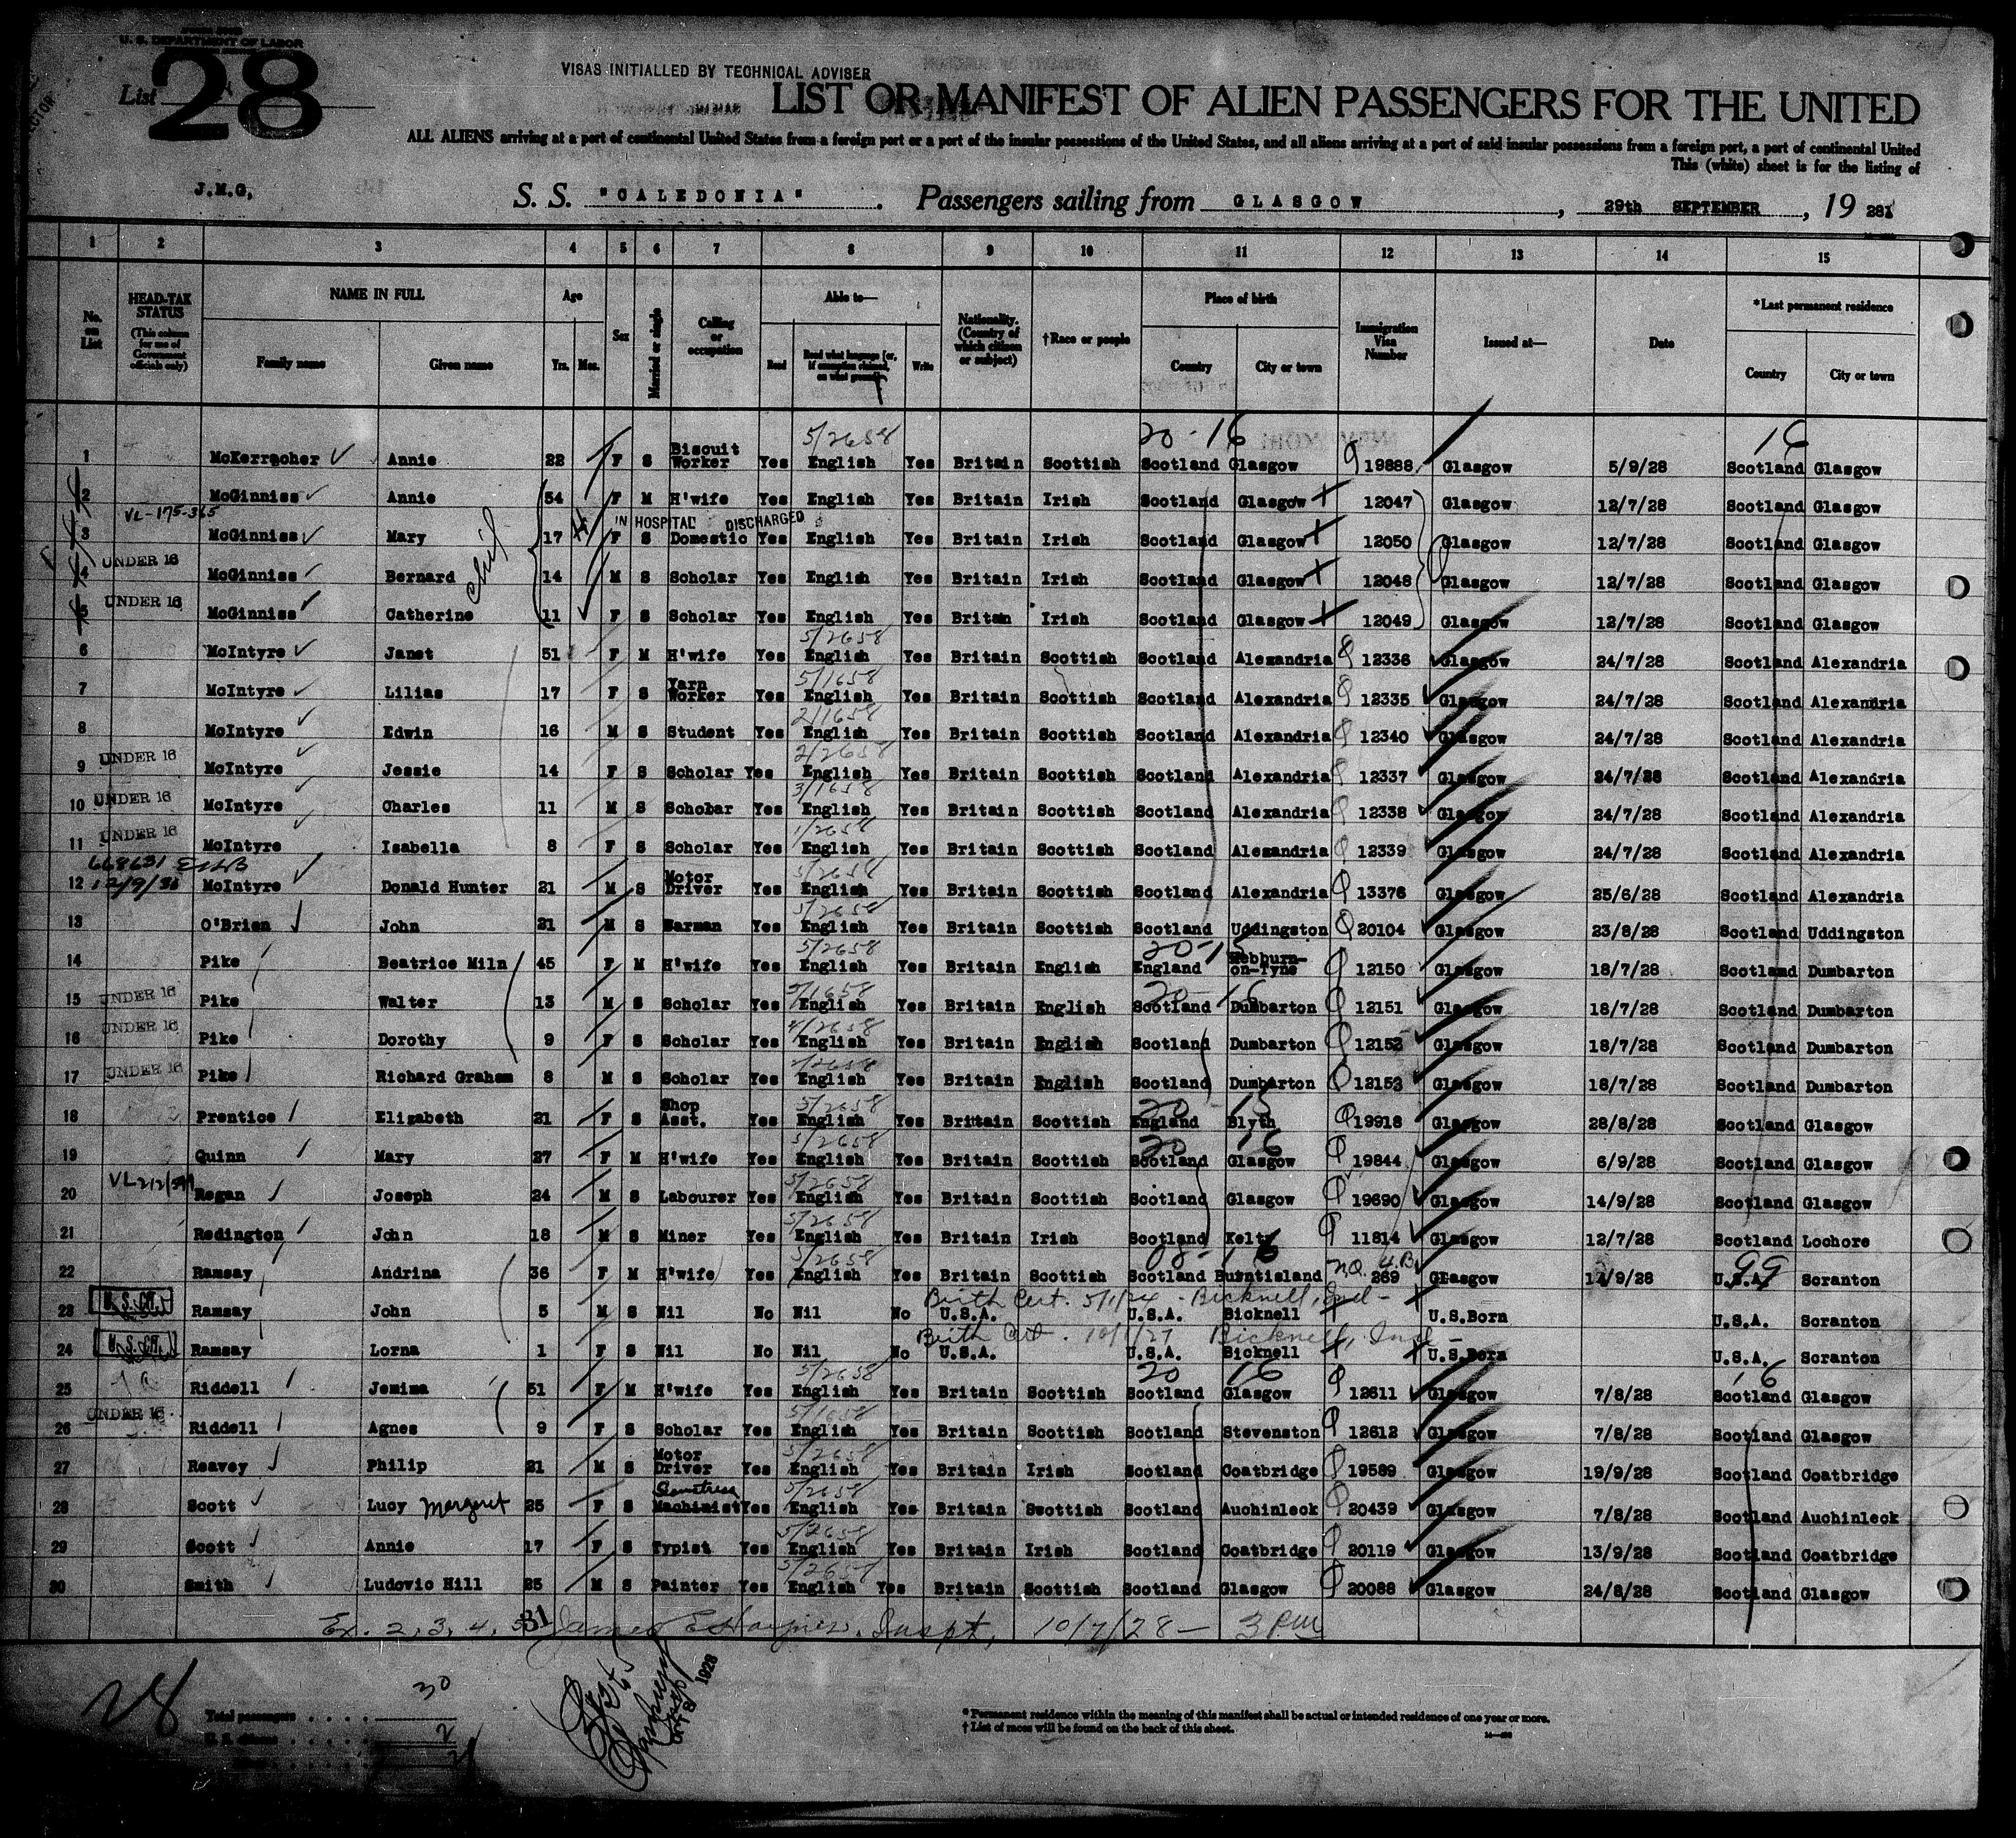 U. S. DEPARTMENT OF LABOR
List 28
VISAS INITIALLED BY TECHNICAL ADVISER
LIST OR MANIFEST OF ALIEN PASSENGERS FOR THE UNITED
ALL ALIENS arriving at a port of continental United States from a foreign port or a port of the insular possessions of the United States, and all aliens arriving at a port of said insular possessions from a foreign port, a port of continental United
This (white) sheet is for the listing of
J.M.G,
S. S. "CALEDONIA". Passengers sailing from GLASGOW, 29th SEPTEMBER, 19 28
1 2 3 4 5 6 7 8 9 10 11 12 13 14 15
No. on List
HEAD-TAX STATUS (This column for use of Government officials only)
NAME IN FULL Family name Given name
Age Yrs. Mos.
Sex
Married or single
Calling or occupation
Able to— Read Read what language [or, if exemption claimed, on what ground] Write
Nationality. (Country of which citizen or subject)
†Race or people
Place of birth Country City or town
Immigration Visa Number
Issued at—
Date
*Last permanent residence Country City or town
5/2658 20-16 16
1 McKerracher Annie 22 F S Biscuit Worker Yes English Yes Britain Scottish Scotland Glasgow 19888 Glasgow 5/9/28 Scotland Glasgow
2 McGinniss Annie 54 F M H'wife Yes English Yes Britain Irish Scotland Glasgow 12047 Glasgow 12/7/28 Scotland Glasgow
VL-175-365 IN HOSPITAL DISCHARGED
3 McGinniss Mary 17 F S Domestic Yes English Yes Britain Irish Scotland Glasgow 12050 Glasgow 12/7/28 Scotland Glasgow
4 UNDER 16 McGinniss Bernard 14 M S Scholar Yes English Yes Britain Irish Scotland Glasgow 12048 Glasgow 12/7/28 Scotland Glasgow
5 UNDER 16 McGinniss Catherine 11 F S Scholar Yes English Yes Britain Irish Scotland Glasgow 12049 Glasgow 12/7/28 Scotland Glasgow
5/2658
6 McIntyre Janet 51 F M H'wife Yes English Yes Britain Scottish Scotland Alexandria 12336 Glasgow 24/7/28 Scotland Alexandria
5/1658
7 McIntyre Lilias 17 F S Yarn Worker Yes English Yes Britain Scottish Scotland Alexandria 12335 Glasgow 24/7/28 Scotland Alexandria
2/1658
8 McIntyre Edwin 16 M S Student Yes English Yes Britain Scottish Scotland Alexandria 12340 Glasgow 24/7/28 Scotland Alexandria
2/2658
9 UNDER 16 McIntyre Jessie 14 F S Scholar Yes English Yes Britain Scottish Scotland Alexandria 12337 Glasgow 24/7/28 Scotland Alexandria
3/1658
10 UNDER 16 McIntyre Charles 11 M S Scholar Yes English Yes Britain Scottish Scotland Alexandria 12338 Glasgow 24/7/28 Scotland Alexandria
1/2658
11 UNDER 16 McIntyre Isabella 8 F S Scholar Yes English Yes Britain Scottish Scotland Alexandria 12339 Glasgow 24/7/28 Scotland Alexandria
668631 5/2658
12 12/9/36 McIntyre Donald Hunter 21 M S Motor Driver Yes English Yes Britain Scottish Scotland Alexandria 13376 Glasgow 25/6/28 Scotland Alexandria
5/2658
13 O'Brien John 21 M S Barman Yes English Yes Britain Scottish Scotland Uddingston 20104 Glasgow 23/8/28 Scotland Uddingston
5/2658 20-15
14 Pike Beatrice Miln 45 F M H'wife Yes English Yes Britain English England Hebburn-on-Tyne 12150 Glasgow 18/7/28 Scotland Dumbarton
5/1658 20-16
15 UNDER 16 Pike Walter 13 M S Scholar Yes English Yes Britain English Scotland Dumbarton 12151 Glasgow 18/7/28 Scotland Dumbarton
4/2658
16 UNDER 16 Pike Dorothy 9 F S Scholar Yes English Yes Britain English Scotland Dumbarton 12152 Glasgow 18/7/28 Scotland Dumbarton
17 UNDER 16 Pike Richard Graham 8 M S Scholar Yes English Yes Britain English Scotland Dumbarton 12153 Glasgow 18/7/28 Scotland Dumbarton
5/2658 20-15
18 Prentice Elizabeth 21 F S Shop Asst. Yes English Yes Britain Scottish England Blyth 19918 Glasgow 28/8/28 Scotland Glasgow
5/2658 20 16
19 Quinn Mary 27 F M H'wife Yes English Yes Britain Scottish Scotland Glasgow 19844 Glasgow 6/9/28 Scotland Glasgow
5/2658
20 Regan Joseph 24 M S Labourer Yes English Yes Britain Scottish Scotland Glasgow 19690 Glasgow 14/9/28 Scotland Glasgow
5/2658
21 Redington John 18 M S Miner Yes English Yes Britain Irish Scotland Kelty 11814 Glasgow 12/7/28 Scotland Lochore
5/2658 08-16 99
22 Ramsay Andrina 36 F M H'wife Yes English Yes Britain Scottish Scotland Burntisland 269 Glasgow 14/9/28 U.S.A. Scranton
Birth Cert. 5/1/24 - Bicknell, Ind -
23 Ramsay John 5 M S Nil No Nil No U.S.A. U.S.A. Bicknell U.S.Born U.S.A. Scranton
Birth Cert. 10/1/27 Bicknell, Ind -
24 Ramsay Lorna 1 F S Nil No Nil No U.S.A. U.S.A. Bicknell U.S.Born U.S.A. Scranton
5/2658 20 16 16
25 Riddell Jemima 51 F M H'wife Yes English Yes Britain Scottish Scotland Glasgow 12611 Glasgow 7/8/28 Scotland Glasgow
5/1658
26 UNDER 16 Riddell Agnes 9 F S Scholar Yes English Yes Britain Scottish Scotland Stevenston 12612 Glasgow 7/8/28 Scotland Glasgow
5/2658
27 Reavey Philip 21 M S Motor Driver Yes English Yes Britain Irish Scotland Coatbridge 19589 Glasgow 19/9/28 Scotland Coatbridge
Seamstress 5/2658
28 Scott Lucy Margaret 25 F S Machinist Yes English Yes Britain Swottish Scotland Auchinleck 20439 Glasgow 7/8/28 Scotland Auchinleck
5/2658
29 Scott Annie 17 F S Typist Yes English Yes Britain Irish Scotland Coatbridge 20119 Glasgow 13/9/28 Scotland Coatbridge
5/2658
30 Smith Ludovic Hill 25 M S Painter Yes English Yes Britain Scottish Scotland Glasgow 20088 Glasgow 24/8/28 Scotland Glasgow
Ex. 2, 3, 4, 5 James Inspt, 10/7/28 - 3 PM
28
Total passengers 30
2
OCT 8 1928
* Permanent residence within the meaning of this manifest shall be actual or intended residence of one year or more.
† List of races will be found on the back of this sheet.